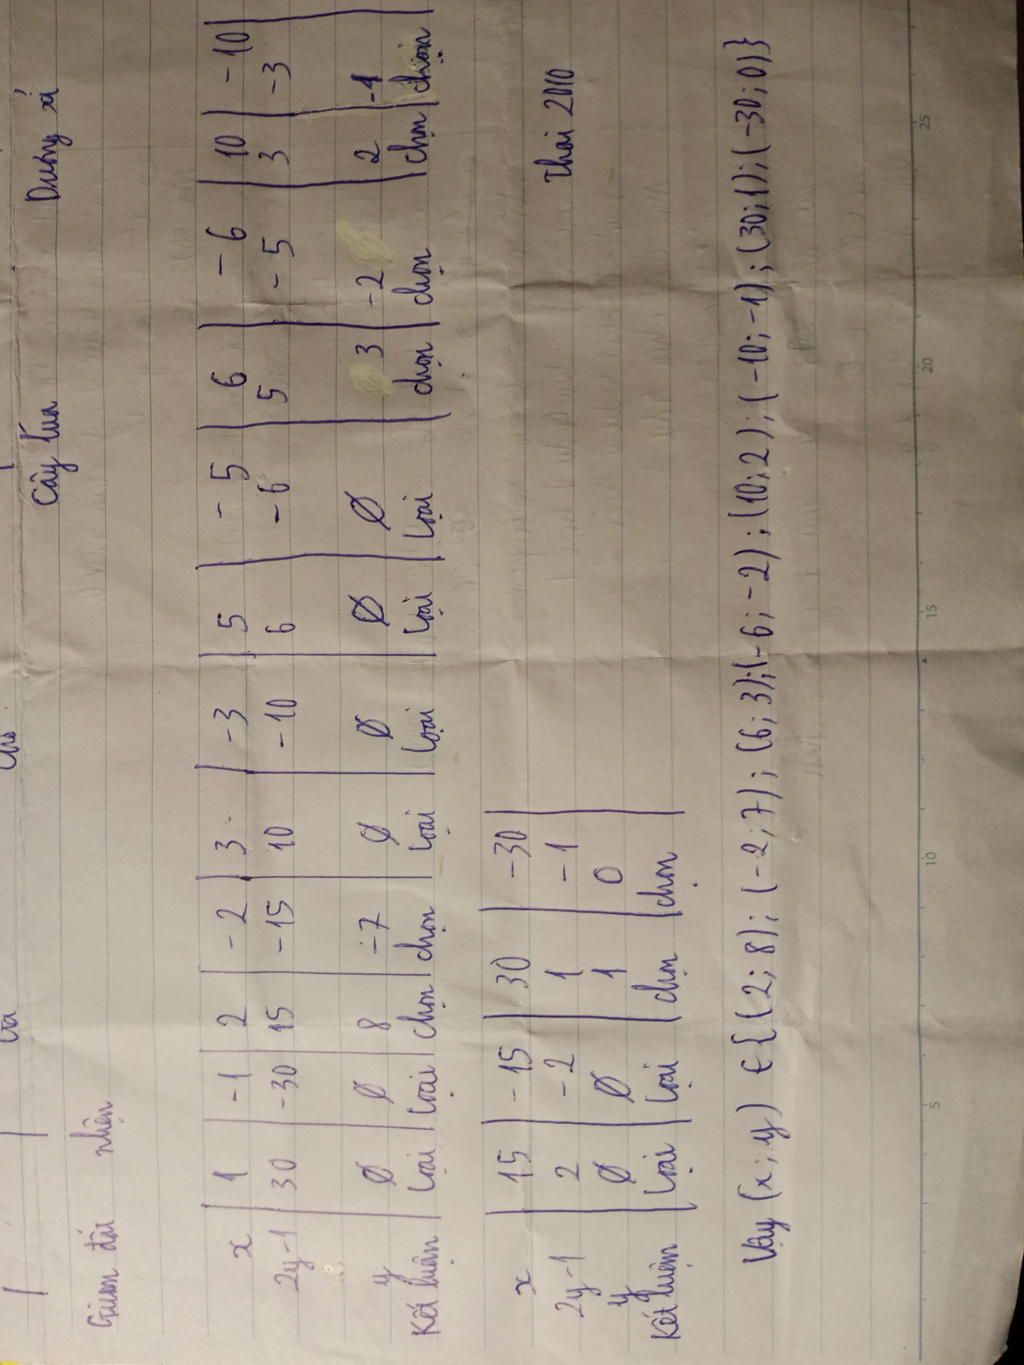 và
Cho
Gieo đất nhiên Cây lúa Dương xỉ
x 1 -1 2 -2 3 -3 5 -5 6 -6 10 -10
2y-1 30 -30 15 -15 10 -10 6 -6 5 -5 3 -3
y ∅ ∅ 8 -7 ∅ ∅ ∅ ∅ 3 -2 2 -1
Kết luận loại loại chọn chọn loại loại loại loại chọn chọn chọn chọn
x 15 -15 30 -30
2y-1 2 -2 1 -1 Thái 2010
y ∅ ∅ 1 0
Kết luận loại loại chọn chọn
Vậy (x; y) ∈ {(2; 8); (-2; 7); (6; 3); (-6; -2); (10; 2); (-10; -1); (30; 1); (-30; 0)}
5 10 15 20 25